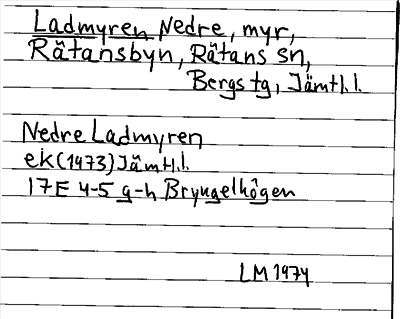 Ladmyren Nedre, myr,
Rätansbyn, Rätans sn,
Bergs tg, Jämtl.l.
Nedre Ladmyren
ek (1973) Jämtl.l.
17E 4-5 g-h Bryngelhögen
LM 1974